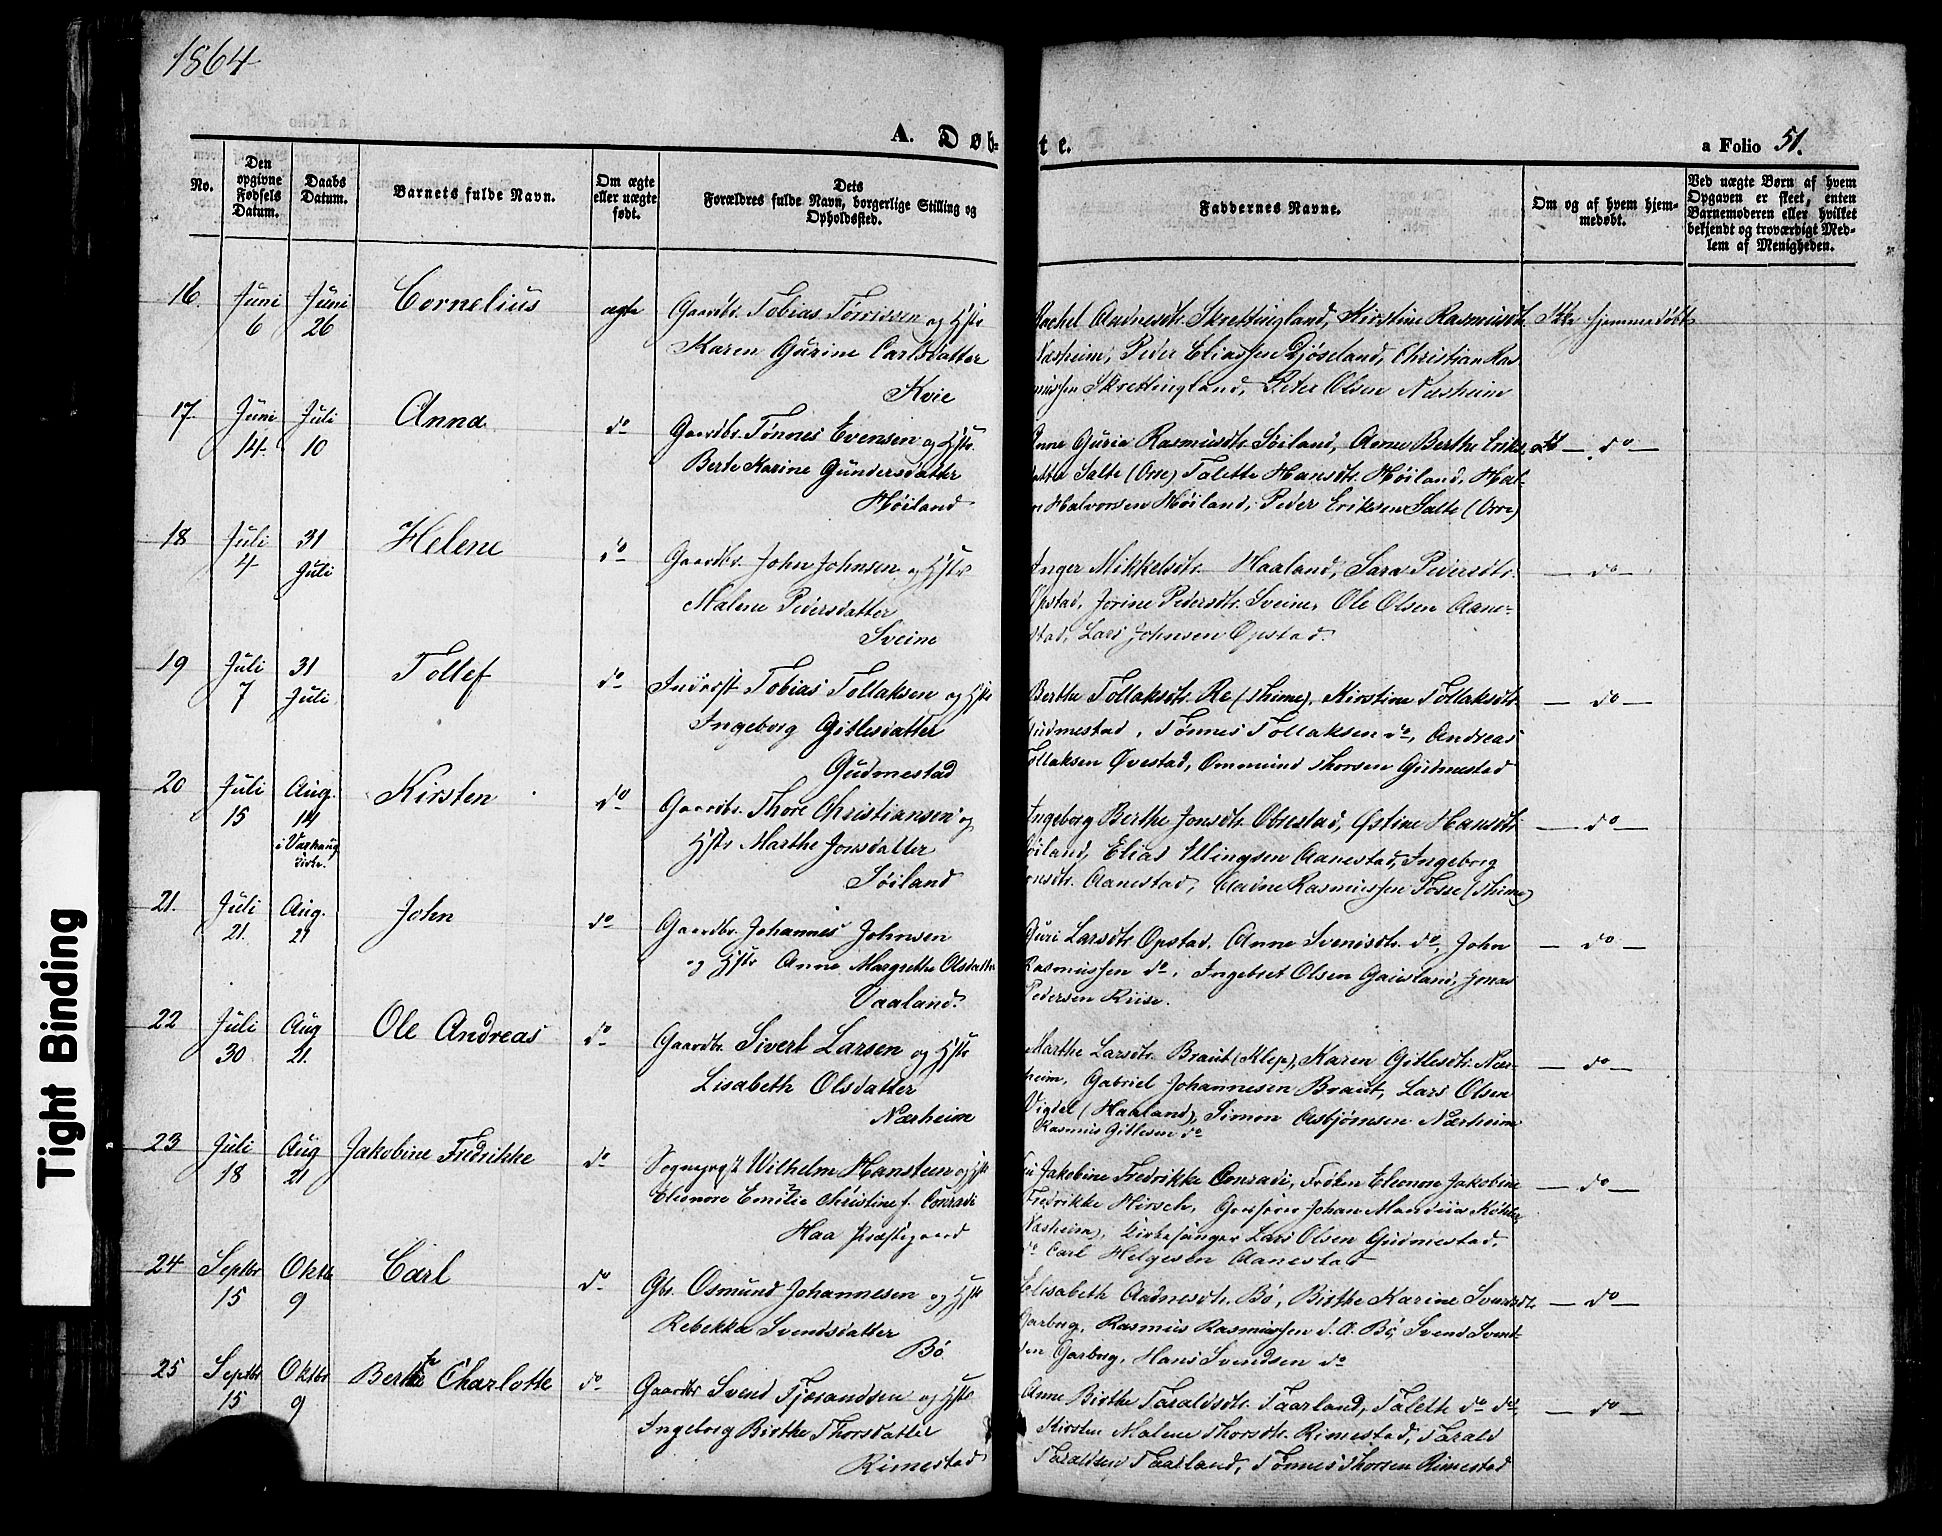 1864
A. Døb-
te.
a Folio 51.
No.
Den opgivne Fødsels Datum.
Daabs Datum.
Barnets fulde Navn.
Om ægte eller uægte født.
Dets Forældres fulde Navn, borgerlige Stilling og Opholdssted.
Faddernes Navne.
Om og af hvem hjem-medøbt.
Ved uægte Børn af hvem Opgaven er skeet, enten Barnemoderen eller hvilket bekjendt og troværdigt Med-lem af Menigheden.
16. Juni 6 Juni 26 Cornelius ægte
Gaardbr. Tobias Torrissen og Hstr
Karen Gurine Carlsdatter
Kvie
Rachel Andnesdtr. Skrettingland, Kirstine Rasmusdtr.
Næsheim, Peder Eliassen Djøseland, Christian Ras
mussen Skrettingland, Peter Olsen Næsheim
Ikke hjemmedøbt
17. Juni 14 Juli 10 Anna do
Gaardbr. Tønnes Evensen og Hstr.
Berte Karine Gundersdatter
Høiland
Anne Guria Rasmusdtr. Søiland, Anne Berthe Eriks
datter Salte (Orre) Talette Hansdtr. Høiland, Hal-
Halvorsen Høiland, Peder Eriksen Salte (Orre)
— do —
18 Juli 4 31 Juli Helene do
Gaardbr. John Johnsen og Hstr
Malene Pedersdatter
Sveine
Inger Mikkelsdtr. Haaland, Sara Pedersdtr.
Opstad, Jorine Pedersdtr. Sveine, Ole Olsen Aane-
stad, Lars Johnsen Opstad.
— do —
19 Juli 7 31 Juli Tollef do
Inderst Tobias Tollaksen og Hstr
Ingeborg Gitlesdatter
Gudmestad
Berthe Tollaksdtr. Re (Thime), Kirstine Tollaksdtr.
Gudmestad, Tønnes Tollaksen do, Andreas
Tollaksen Øvestad, Ommund Thorsen Gudmestad
— do —
20 Juli 15 Aug. 14 i Varhaug Kirke. Kirsten do
Gaardbr. Thore Christiansen og
Hstr Marthe Jonsdatter
Søiland
Ingeborg Berthe Jonsdtr. Obrestad, Østine Hansdtr
Høiland, Elias Ellingsen Aanestad, Ingeborg
Aanestad, Rasmussen Fosse (Thime)
— do —
21. Juli 21. Aug. 21 John do
Gaardbr. Johannes Johnsen
og Hstr Anne Margrethe Olsdatter
Vaaland.
Guri Larsdtr. Opstad, Anne Svensdtr. do, John
Rasmussen do, Ingebret Olsen Gausland, Jonas
Pedersen Riise.
— do —
22 Juli 30 Aug 21. Ole Andreas do
Gaardbr. Sivert Larsen og Hstr
Lisabeth Olsdatter
Nærheim
Marthe Larsdtr. Braut (Klep), Karen Gitlesdtr. Nær-
heim, Gabriel Johannesen Braut, Lars Olsen
Vigdel (Haaland), Simon Asbjørnsen Nærheim
Rasmus Gitlesen do
— do —
23 Juli 18 Aug 21 Jakobine Fredrikke do
Sognepræst Wilhelm Hansteen og Hstr
Eleonore Emilie Christine f. Conradi
Haa Præstegaard
Jakobine Fredrikke Conradi, Frøken Eleonore Jakobine
Fredrikke Hirsch, Johan Køhler
Næsheim, Kirkesanger Lars Olsen Gudmestad,
do Carl Helgesen Aanestad
— do —
24 Septbr 15 Oktb 9 Carl do
Gbr. Osmund Johannesen og Hstr
Rebekka Svendsdatter
Bø
Elisabeth Aadnesdtr. Bø, Birthe Karine Svendsdtr.
Garborg, Rasmus Rasmussen d. A. Bø, Svend Svend-
sen Garborg, Hans Svendsen do
— do —
25 Septbr 15 Oktbr 9 Berthe Charlotte do
Gaardbr Svend Tjerandsen og Hstr
Ingeborg Birthe Thorsdatter
Rimestad
Anne Birthe Taraldsdtr. Taarland, Taleth do do,
Kirsten Malene Thorsdtr. Rimestad, Tarald
Taraldsen Taarland, Tønnes Thorsen Rimestad
— do —
Tight Binding